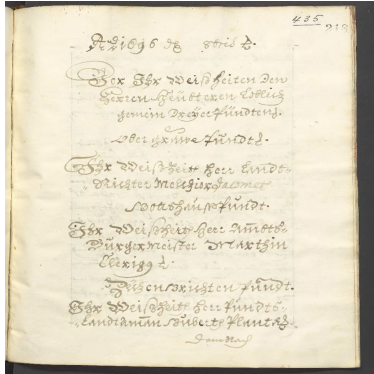 436
Ao 1696 dß
Vor Ihr Weißheiten den
Herren Heübteren Loblich
gemein Dreÿer Pündten.
Ober grauwe Pundt.
Ihr Weißheitt Herr Landt-
Richter Melchior Jacomet
Gottshauß Pundt.
Ihr Weißheitt Herr Ambts-
Bürgermeister Marthin
Clerigg
Zechen Grichten Pundt.
Ihr Weißheitt Herr Pundts-
Landtaman Planta